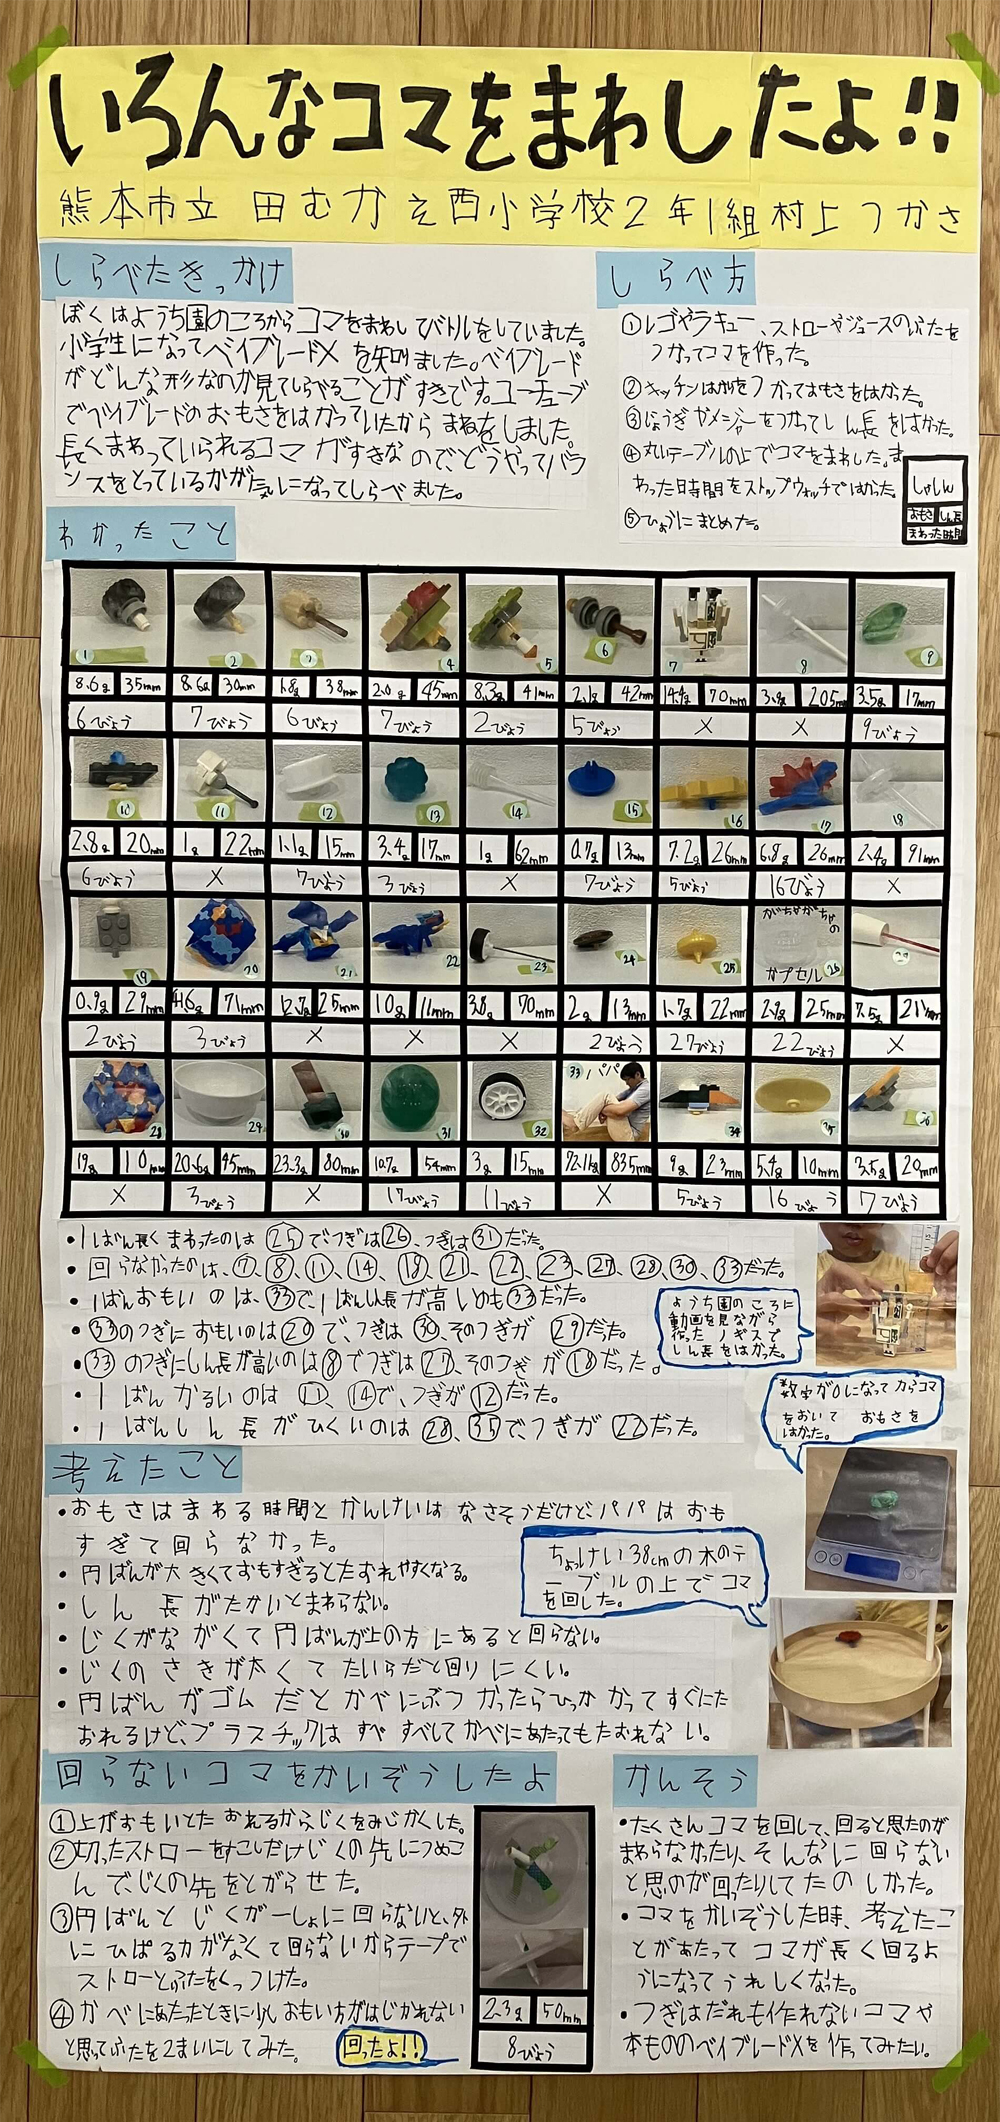 いろんなコマをまわしたよ!!
熊本市立 田むかえ西小学校2年1組 村上つかさ
しらべたきっかけ
ぼくはようち園のころからコマをまわしてバトルをしていました。
小学生になってベイブレードXを知りました。ベイブレード
がどんな形なのか見てしらべることがすきです。ユーチューブ
でベイブレードのおもさをはかっていたからまねをしました。
長くまわっていられるコマがすきなので、どうやってバラ
ンスをとっているかが気になってしらべました。
しらべ方
①レゴやラキュー、ストローやジュースのふたを
つかってコマを作った。
②キッチンはかりをつかっておもさをはかった。
③じょうぎやメジャーをつかってしん長をはかった。
④丸いテーブルの上でコマをまわしました。ま
わった日時間をストップウォッチではかった。
⑤ひょうにまとめた。
しゃしん
おもさ しん長
まわった時間
わかったこと
1 2 3 4 5 6 7 8 9
8.6g 35mm 8.6g 30mm 1.8g 38mm 2.0g 45mm 8.3g 41mm 2.1g 42mm 14.4g 70mm 3.9g 205mm 3.5g 17mm
6びょう 7びょう 6びょう 7びょう 2びょう 5びょう × × 9びょう
10 11 12 13 14 15 16 17 18
2.8g 20mm 1g 22mm 1.1g 15mm 3.4g 17mm 1g 62mm 0.7g 13mm 7.2g 26mm 6.8g 26mm 2.4g 91mm
6びょう × 7びょう 3びょう × 7びょう 5びょう 16びょう ×
19 20 21 22 23 24 25 がちゃがちゃの カプセル 26 27
0.9g 29mm 71mm 12.7g 25mm 10g 11mm 3.8g 70mm 2g 13mm 1.7g 22mm 2.9g 25mm 7.5g
2びょう 3びょう × × × 2びょう 27びょう 22びょう ×
28 29 30 31 32 33 パパ 34 35 36
19g 10mm 20.6g 45mm 23.3g 80mm 10.7g 54mm 3g 15mm 835mm 9g 23mm 5.4g 10mm 3.5g 20mm
× 3びょう × 17びょう 11びょう × 5びょう 16びょう 7びょう
・1ばん長くまわったのは㉕でつぎは㉖、つぎは㉛だった。
・回らなかったのは、⑦、⑧、⑪、⑭、⑱、㉑、㉒、㉓、㉗、㉘、㉚、㉝だった。
・1ばんおもいのは、㉝で、1ばんしん長が高いのも㉝だった。
・㉝のつぎにおもいのは⑳で、つぎは㉚、そのつぎが㉙だった。
・㉝のつぎにしん長が高いのは⑧でつぎは㉗、そのつぎが⑱だった。
・1ばんかるいのは⑪、⑭で、つぎが⑫だった。
・1ばんしん長がひくいのは㉘、㉟で、つぎが㉒だった。
ようち園のころに
動画を見ながら
作ったノギスで
しん長をはかった。
数字が0になってからコマ
をおいておもさを
はかった。
考えたこと
・おもさはまわる時間とかんけいはなさそうだけど、パパはおも
すぎて回らなかった。
・円ばんが大きくておもすぎるとたおれやすくなる。
・しん長がたかいとまわらない。
・じくがながくて円ばんが上の方にあると回らない。
・じくのさきが太くてたいらだと回りにくい。
・円ばんがゴムだとかべにぶつかったらひっかかってすぐにた
おれるけど、プラスチックはすべすべしてかべにあたってもたおれない。
ちょっけい38cmの木のテ
ーブルの上でコマ
を回した。
回らないコマをかいぞうしたよ
①上がおもいとたおれるからじくをみじかくした。
②切ったストローをすこしだけじくの先につめこ
んで、じくの先をとがらせた。
③円ばんとじくがーしょに回らないと、外
にひぱる力がなくて回らないからテープで
ストローとふたをくっつけた。
④かべにあたったときに少しおもい方がはじかれない
と思ってふたを2まいにしてみた。
回ったよ!!
2.3g 50mm
8びょう
かんそう
・たくさんコマを回して、回ると思たのが
まわらなかったり、そんなに回らない
と思のが回ったりしてたのしかった。
・コマをかいぞうした時、考えたこ
とがあたってコマが長く回るよ
うになってうれしくなった。
・つぎはだれも作れないコマや
本もののベイブレードXを作ってみたい。